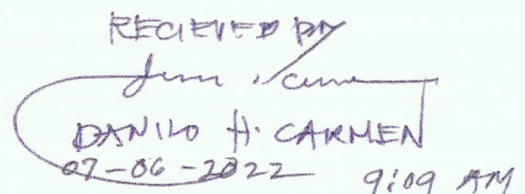 RECIEVED BY
DANILO H. CARMEN
07-06-2022 9:09 AM